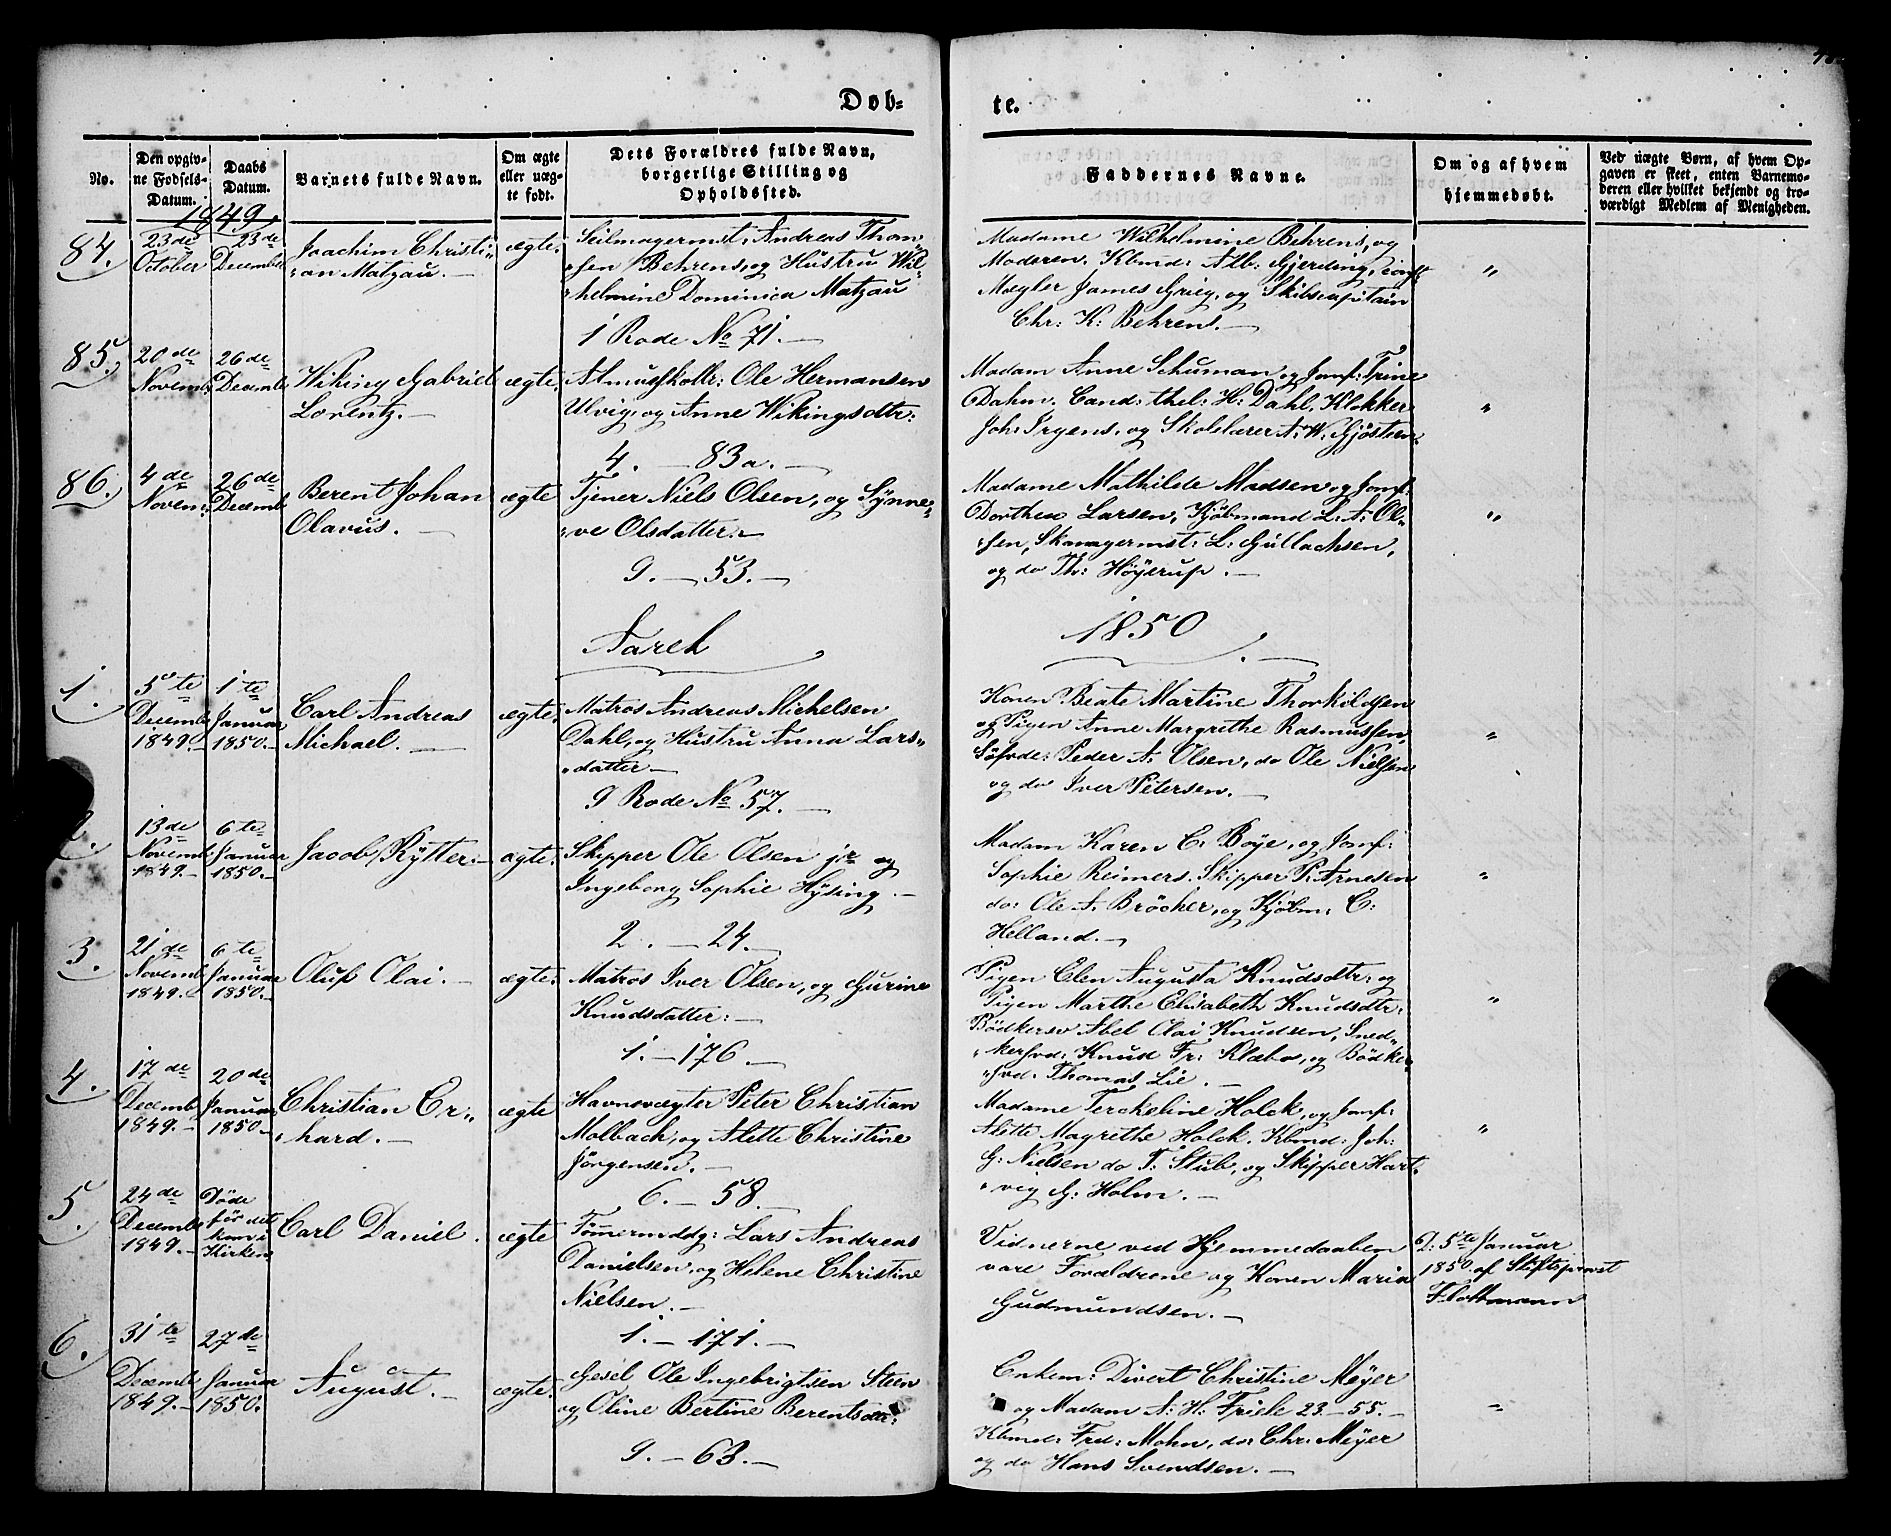 Døb-
te.
No.
Den opgiv-
ne Fødsels-
Datum.
Daabs
Datum.
Barnets fulde Navn.
Om ægte
eller uæg-
te født.
Dets Forældres fulde Navn,
borgerlige Stilling og
Opholdssted.
Faddernes Navne.
Om og af hvem
hjemmedøbt.
Ved uægte Børn, af hvem Op-
gaven er skeet, enten Barnemo-
deren eller hvilket bekjendt og tro-
værdigt Medlem af Menigheden.
1849.
84.
23de
October
23de
Decembr
Joachim Christi-
an Matzau.
ægte.
Seilmagermst. Andreas Thom-
sen Behrens, og Hustru Wil-
helmine Dominica Matzau
1 Rode No 71.
Madame Wilhelmine Behrens, og
Moderen. Kbmd: Alb: Gjerding,
Mægler James Grieg, og Skibscapitain
Chr: K: Behrens.
"
85.
20de
Novemb:
26de
Decemb:
Wiking Gabriel
Lorentz.
ægte.
Almueskolelr: Ole Hermansen
Ulvig, og Anne Wikingsdtr:
4. — 83a.
Madam Anne Schuman og Jomf: Trine
Dahm. Cand: thel: H: Dahl, Klokker
Joh: Irgens, og Skolelærer A: W: Gjöstien.
"
86.
4de
Novem:
26de
Decemb:
Berent Johan
Olavus.
ægte
Tjener Niels Olsen, og Synne-
ve Olsdatter.
9. — 53.
Madame Mathilde Madsen og Jomf:
Dorthea Larsen, Kjøbmand L: A: Ol-
sen, Skomagermst: L: Gullachsen,
og do Th: Höyerup.
"
Aaret
1850
1.
5te
Decemb:
1849.
1te
Januar
1850.
Carl Andreas
Michael.
ægte.
Matros Andreas Michelsen
Dahl, og Hustru Anna Lars-
datter
9 Rode No 57.
Konen Beate Martine Thorkildsen
og Pigen Anne Margrethe Rasmussen,
Söfvde: Peder A. Olsen, do Ole Nielsen
og do Iver Petersen.
"
2.
13de
Novemb:
1849.
6te
Januar
1850.
Jacob Rÿtter.
ægte.
Skipper Ole Olsen jr og
Ingeborg Sophie Hÿsing.
2. — 24.
Madam Karen C. Böye, og Jomf:
Sophie Reimers. Skipper P. Arnesen
do: Ole A. Bröcher, og Kjöbm: C:
Helland.
"
3.
21de
Novemb:
1849.
6te
Januar
1850.
Oluf Olai.
ægte.
Matros Iver Olsen, og Gurine
Knudsdatter.
1. — 176.
Pigen Elen Augusta Knudsdtr: og
Pigen Marthe Elisabeth Knudsdtr:
Bödkersv Abel Olai Knudsen, Sned-
kersvd: Knud Fr: Klæbo, og Bödke-
svd. Thomas Lie.
"
4.
17de
Decemb:
1849.
20de
Januar
1850.
Christian Er-
hard.
ægte
Havnevægter Peter Christian
Molbach, og Alette Christine
Jörgensen.
6. — 58.
Madame Terckeline Holck, og Jomf:
Alette Magrethe Holck. Kbmd: Joh:
G: Nielsen do T: Stub, og Skipper Hart-
vig G: Holm.
"
5.
24de
Decemb:
1849.
Döde
för det
kom i
Kirken
Carl Daniel.
ægte
Tömermddg: Lars Andreas
Danielsen, og Helene Christine
Nielsen.
1. — 171.
Vidnerne ved Hjemmedaaben
vare Forældrene og Konen Maria
Gudmundsen.
D: 5te Januar
1850. af Stiftsprovst
Flottmann
6.
31te
Decemb:
1849.
27de
Januar
1850.
August.
ægte.
Gesel Ole Ingebrigtsen Steen
og Oline Bertine Berentsdtr:
9. — 63.
Enkem: Divert Christine Meÿer
og Madam A: H: Friele 23 — 55.
Kbmd: Fred: Mohn, do: Chr: Meÿer
og do Hans Svendsen.
"